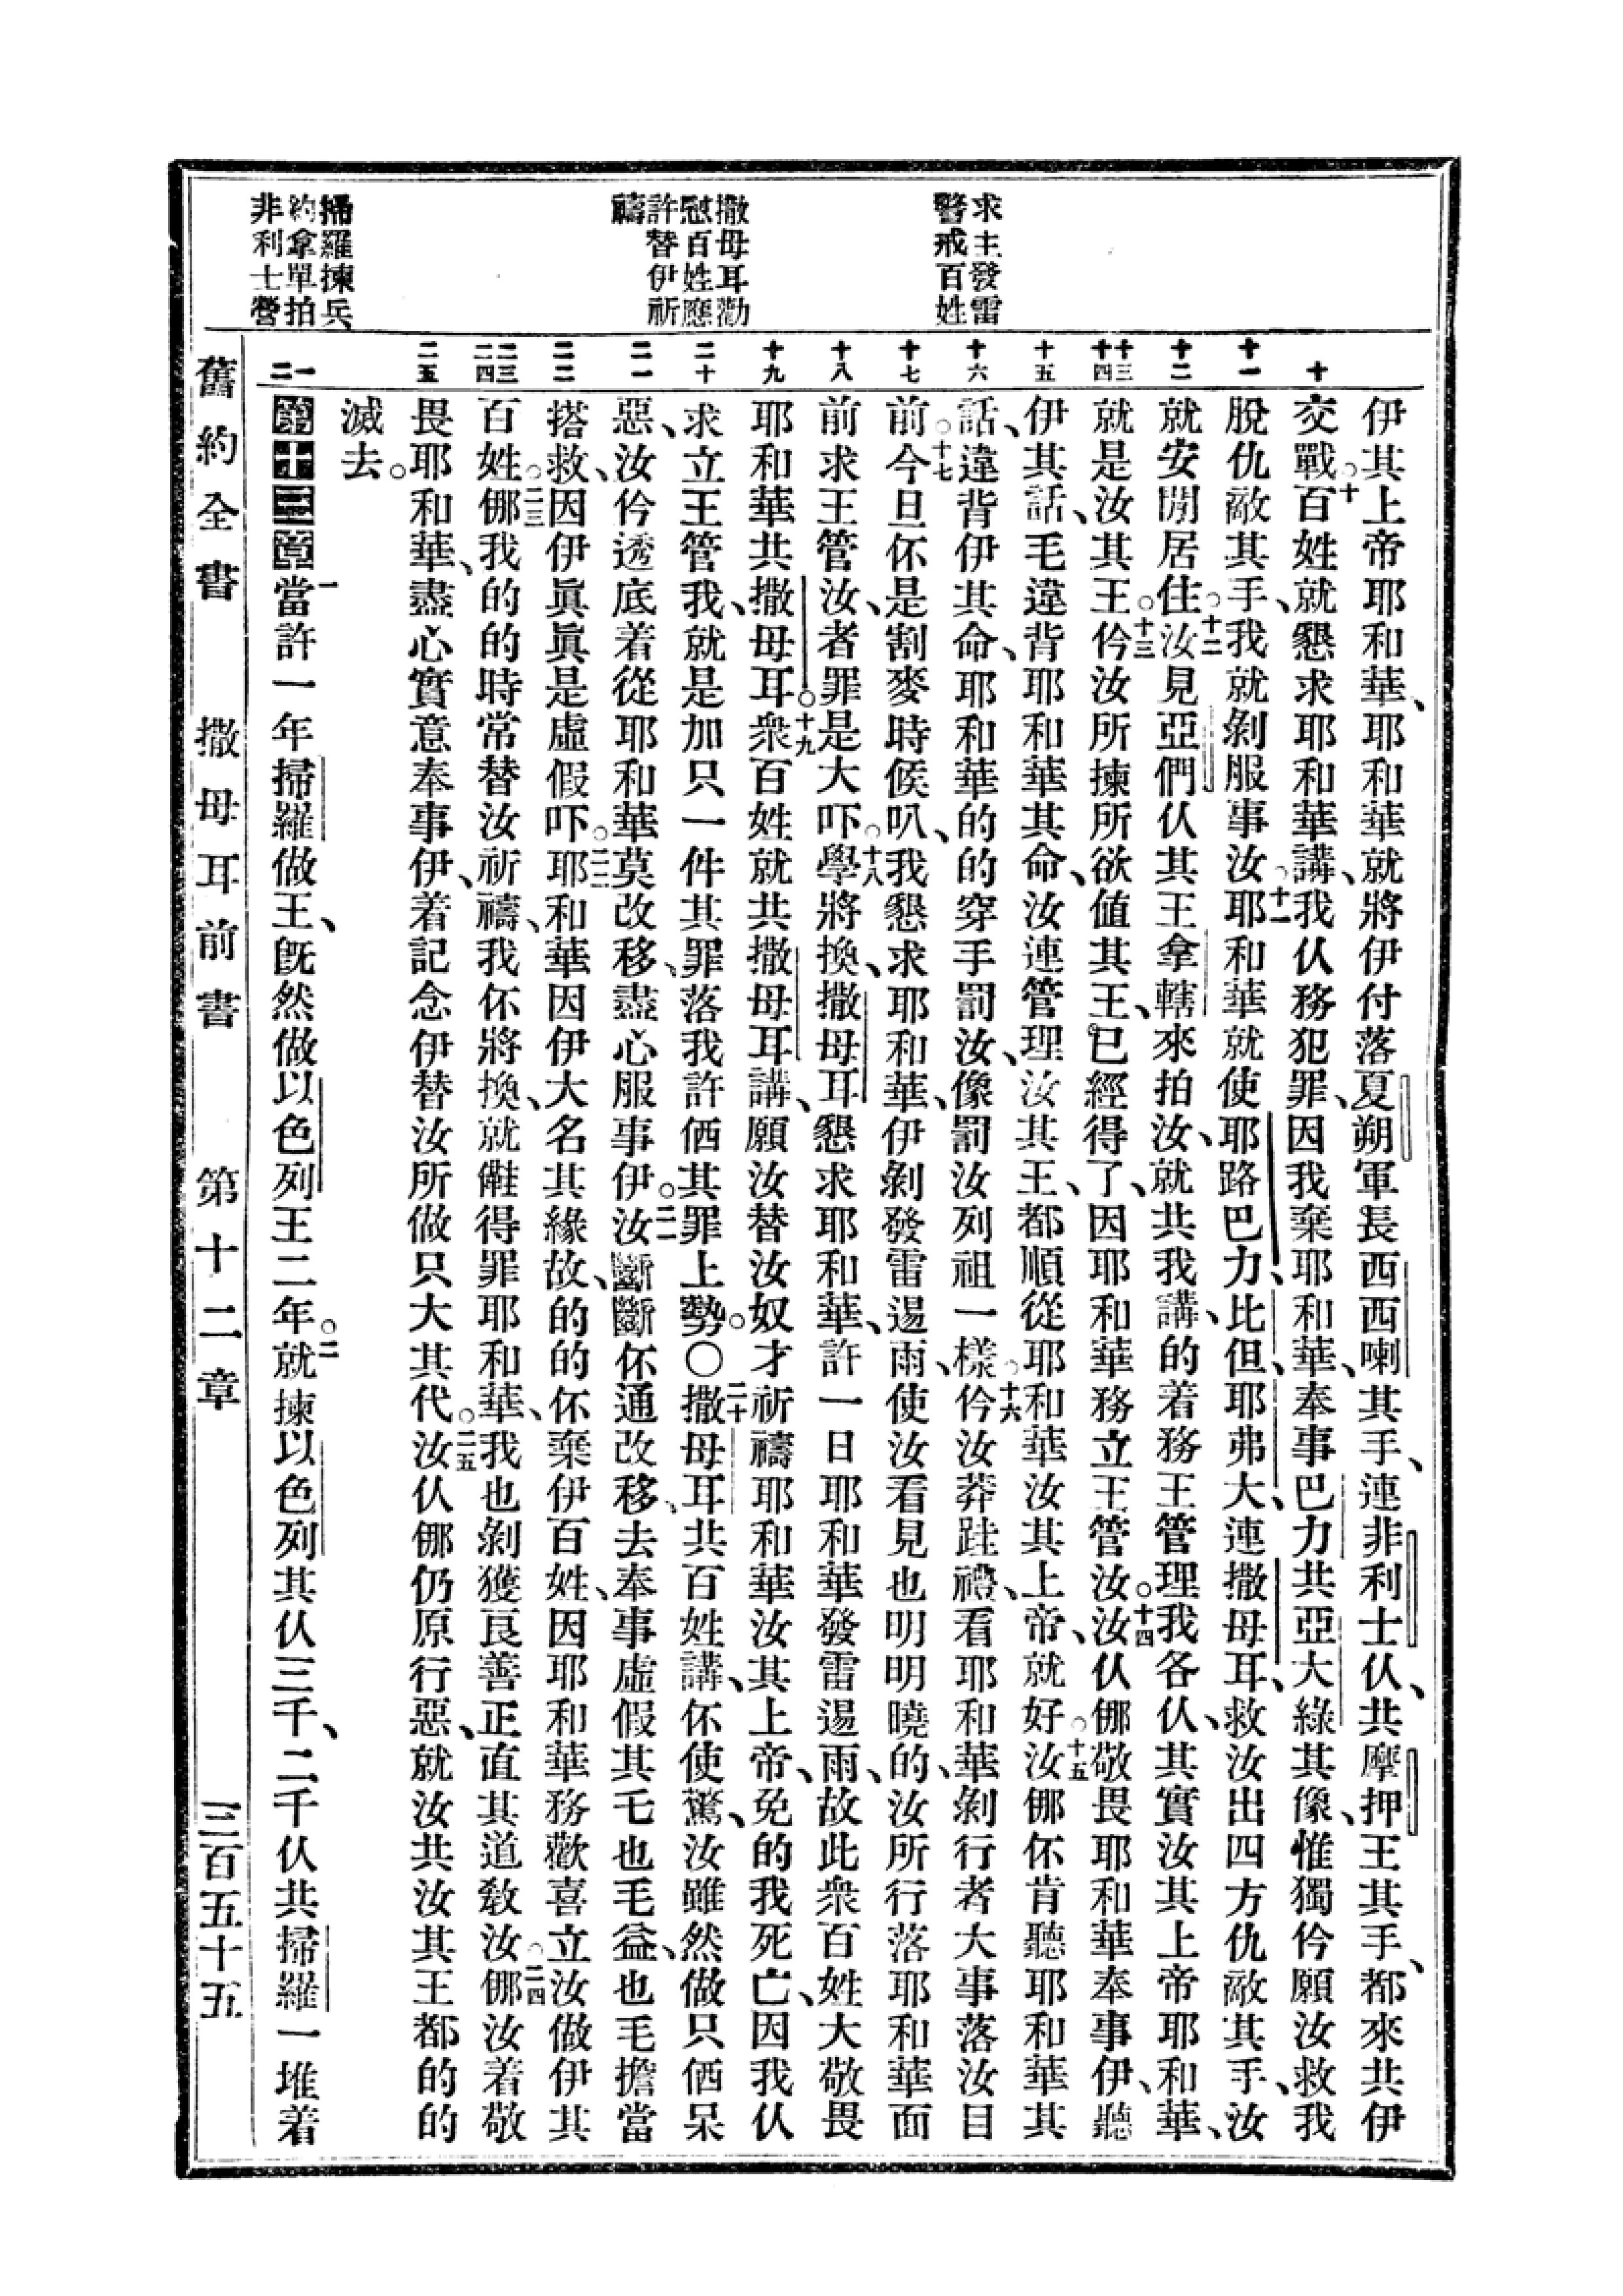 求主發雷
警戒百姓
撒母耳勸
慰百姓應
許替伊祈
禱
掃羅揀兵、
約拿單拍
非利士營
十
十一
十二
十三
十四
十五
十六
十七
十八
十九
二十
二一
二二
二三
二四
二五
一
二
伊其上帝耶和華、耶和華就將伊付落夏朔軍長西西喇其手、連非利士仈、共摩押王其手、都來共伊
交戰○十百姓就懇求耶和華講、我仈務犯罪、因我棄耶和華、奉事巴力共亞大綠其像、惟獨仱願汝救我
脫仇敵其手、我就剝服事汝○十一耶和華就使耶路巴力、比但、耶弗大、連撒母耳、救汝出四方仇敵其手、汝
就安閒居住○十二汝見亞們仈其王拿轄來拍汝、就共我講、的着務王管理我各仈、其實汝其上帝耶和華、
就是汝其王○十三仱汝所揀所欲值其王、已經得了、因耶和華務立王管汝○十四汝仈㑚敬畏耶和華奉事伊、聽
伊其話、毛違背耶和華其命、汝連管理汝其王、都順從耶和華汝其上帝、就好○十五汝㑚伓肯聽耶和華其
話、違背伊其命、耶和華的的穿手罰汝、像罰汝列祖一樣○十六仱汝莽跬禮、看耶和華、剝行者大事落汝目
前○十七今旦伓是割麥時候叭、我懇求耶和華、伊剝發雷逿雨、使汝看見也明明曉的、汝所行落耶和華面
前求王管汝、者罪是大吓○十八學將換、撒母耳懇求耶和華、許一日耶和華發雷逿雨、故此衆百姓大敬畏
耶和華共撒母耳○十九衆百姓就共撒母耳講、願汝替汝奴才祈禱耶和華汝其上帝、免的我死亡、因我仈
求立王管我、就是加只一件其罪、落我許㐰其罪上勢○〇二十撒母耳共百姓講、伓使驚、汝雖然做只㐰呆
惡、汝仱透底着從耶和華莫改移、盡心服事伊○二一汝斷斷伓通改移、去奉事虛假其乇也毛益、也毛擔當
搭救、因伊眞眞是虛假吓○二二耶和華因伊大名其緣故、的的伓棄伊百姓、因耶和華務歡喜立汝做伊其
百姓○二三㑚我的的時常替汝祈禱、我伓將換、就㒲得罪耶和華、我也剝獲良善正直其道教汝○二四㑚汝着敬
畏耶和華、盡心實意奉事伊、着記念伊替汝所做只大其代○二五汝仈㑚仍原行惡、就汝共汝其王都的的
滅去○
第十三章一當許一年掃羅做王、旣然做以色列王二年○二就揀以色列其仈三千、二千仈共掃羅一堆着
舊約全書　撒母耳前書　第十二章　三百五十五